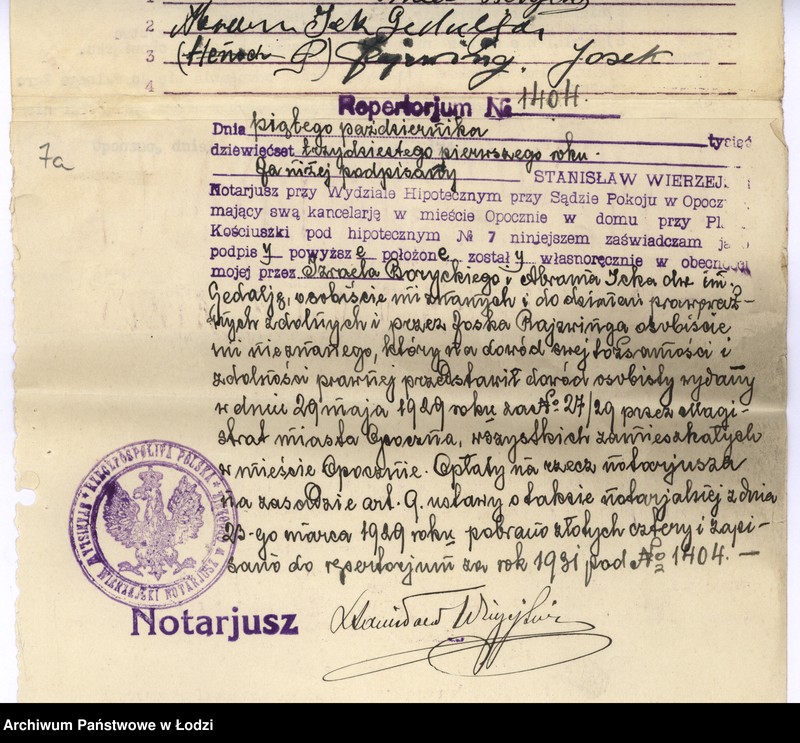 1
2 Abram Icek Gedulja
3 (Henoch ) Josek
4
Repertorjum № 1404.
7a
Dnia piątego października tysiąc
dziewięćset trzydziestego pierwszego roku.
Ja niżej podpisany STANISŁAW WIERZEJ
Notarjusz przy Wydziale Hipotecznym przy Sądzie Pokoju w Opocz
mający swą kancelarję w mieście Opocznie w domu przy Pl.
Kościuszki pod hipotecznym № 7 ninjejszem zaświadczam
podpisy powyższe położone zostały własnoręcznie w obecności
mojej przez Izraela Boryckiego i Abrama Icka dw. im.
Gedalję, osobiście mi znanych i do działań prawnych
zdolnych i przez Joska Rajzwinga osobiście
mi nieznanego, który na dowód swej tożsamości i
zdolności prawnej przedstawił dowód osobisty wydany
w dniu 29 maja 1929 roku za № 27/29 przez Magi-
strat miasta Opoczna, wszystkich zamieszkałych
w mieście Opocznie. Opłaty na rzecz notarjusza
na zasadzie art. 9. ustawy o taksie notarjalnej z dnia
25-go marca 1929 roku pobrano złotych cztery i zapi-
sano do repertorjum za rok 1931 pod № 1404. —
RZECZPOSPOLITA POLSKA
STANISŁAW WIERZEJSKI NOTARJUSZ
Notarjusz Stanisław Wierzejski
Archiwum Państwowe w Łodzi